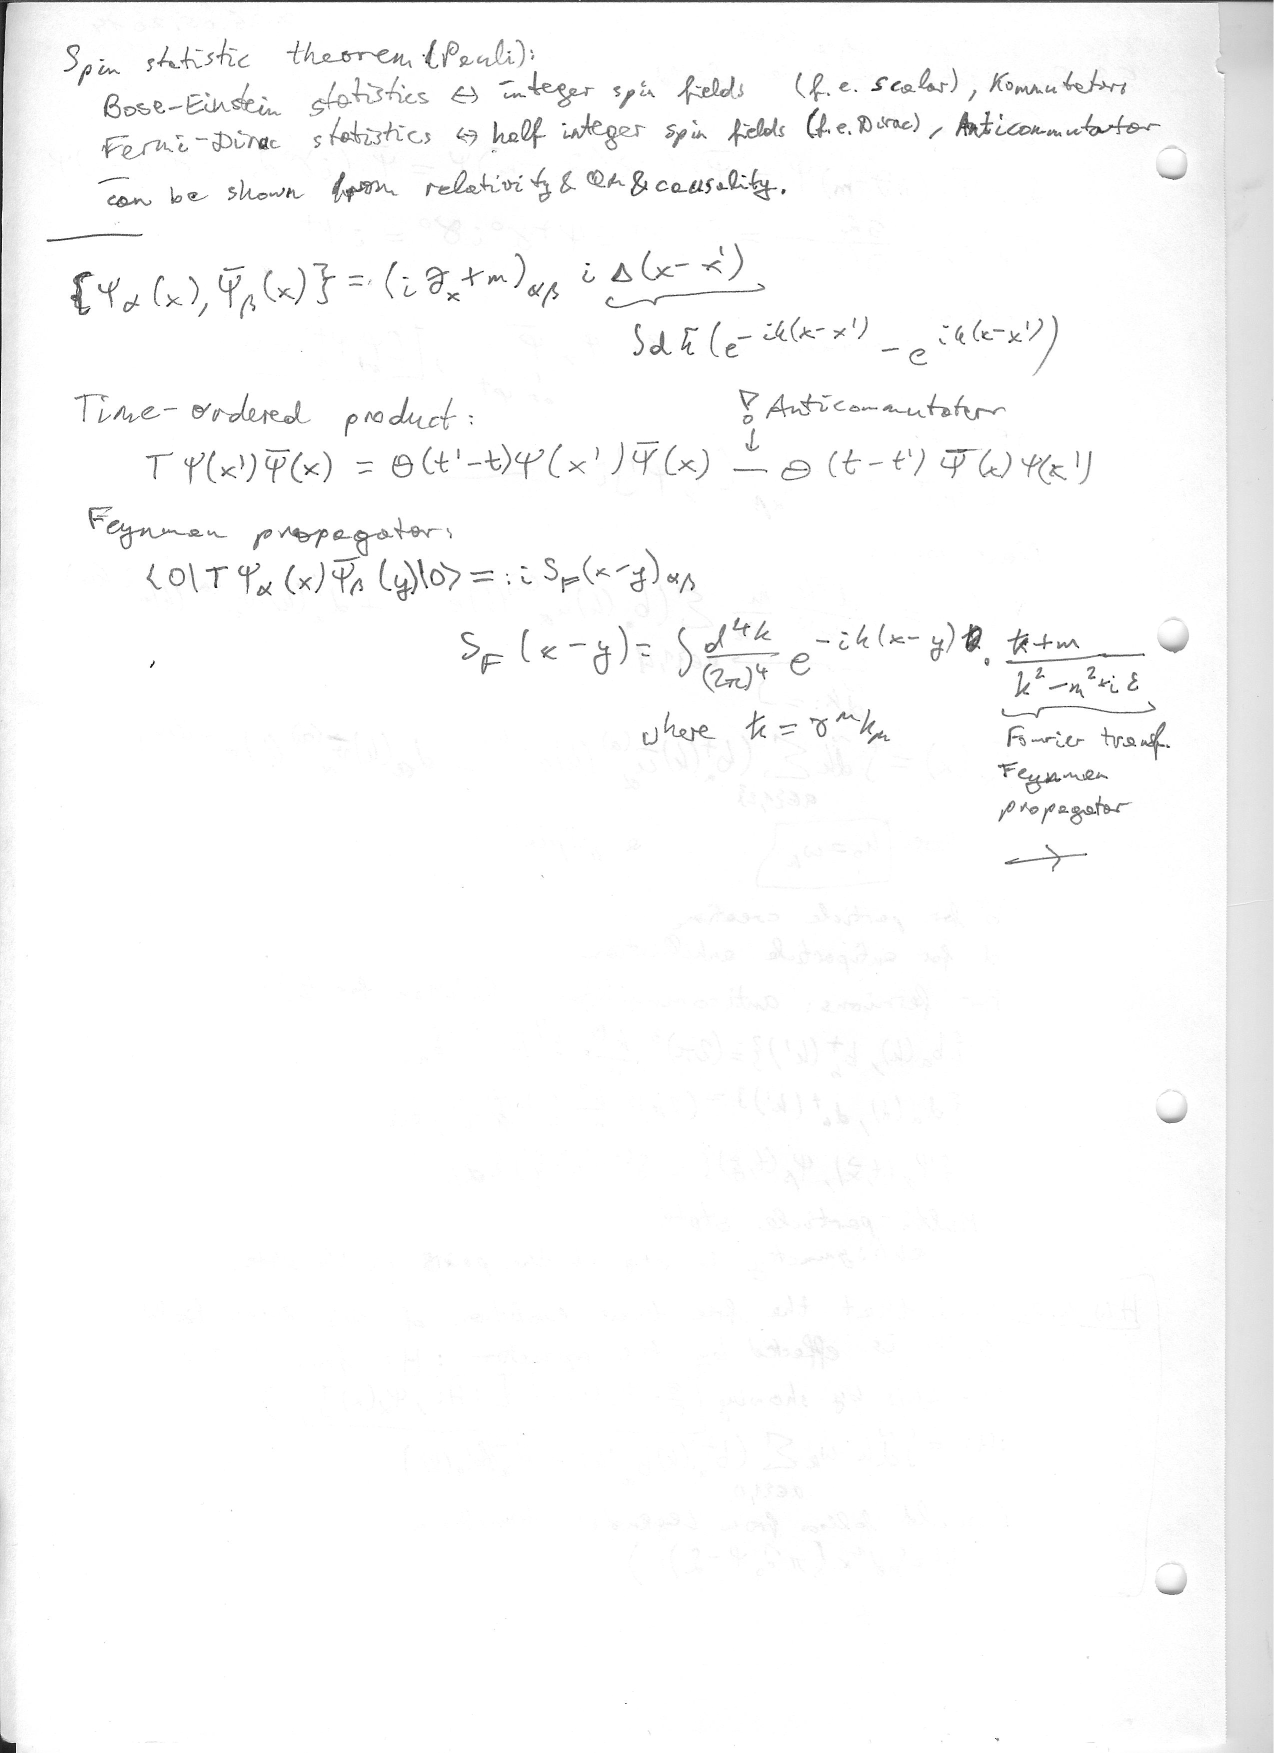 Spin statistic theorem (Pauli):
Bose-Einstein statistics ⇔ integer spin fields (f.e. scalar), Kommutators
Fermi-Dirac statistics ⇔ half integer spin fields (f.e. Dirac), Anticommutator
can be shown from relativity & QM & causality.
{Ψα(x), Ψ̄β(x)} = (i∂̸x+m)αβ i Δ(x-x')
∫dk̃ (e^{-ik(x-x')} - e^{ik(x-x')})
Time-ordered product:
! Anticommutator
↓
T Ψ(x')Ψ̄(x) = Θ(t'-t)Ψ(x')Ψ̄(x) — Θ(t-t') Ψ̄(x)Ψ(x')
Feynman propagator:
<0|T Ψα(x)Ψ̄β(y)|0> =: i S_F(x-y)αβ
S_F(x-y) = ∫ d⁴k/(2π)⁴ e^{-ik(x-y)} · (k̸+m)/(k²-m²+iε)
where k̸ = γ^μ k_μ
Fourier transf.
Feynman
propagator
→